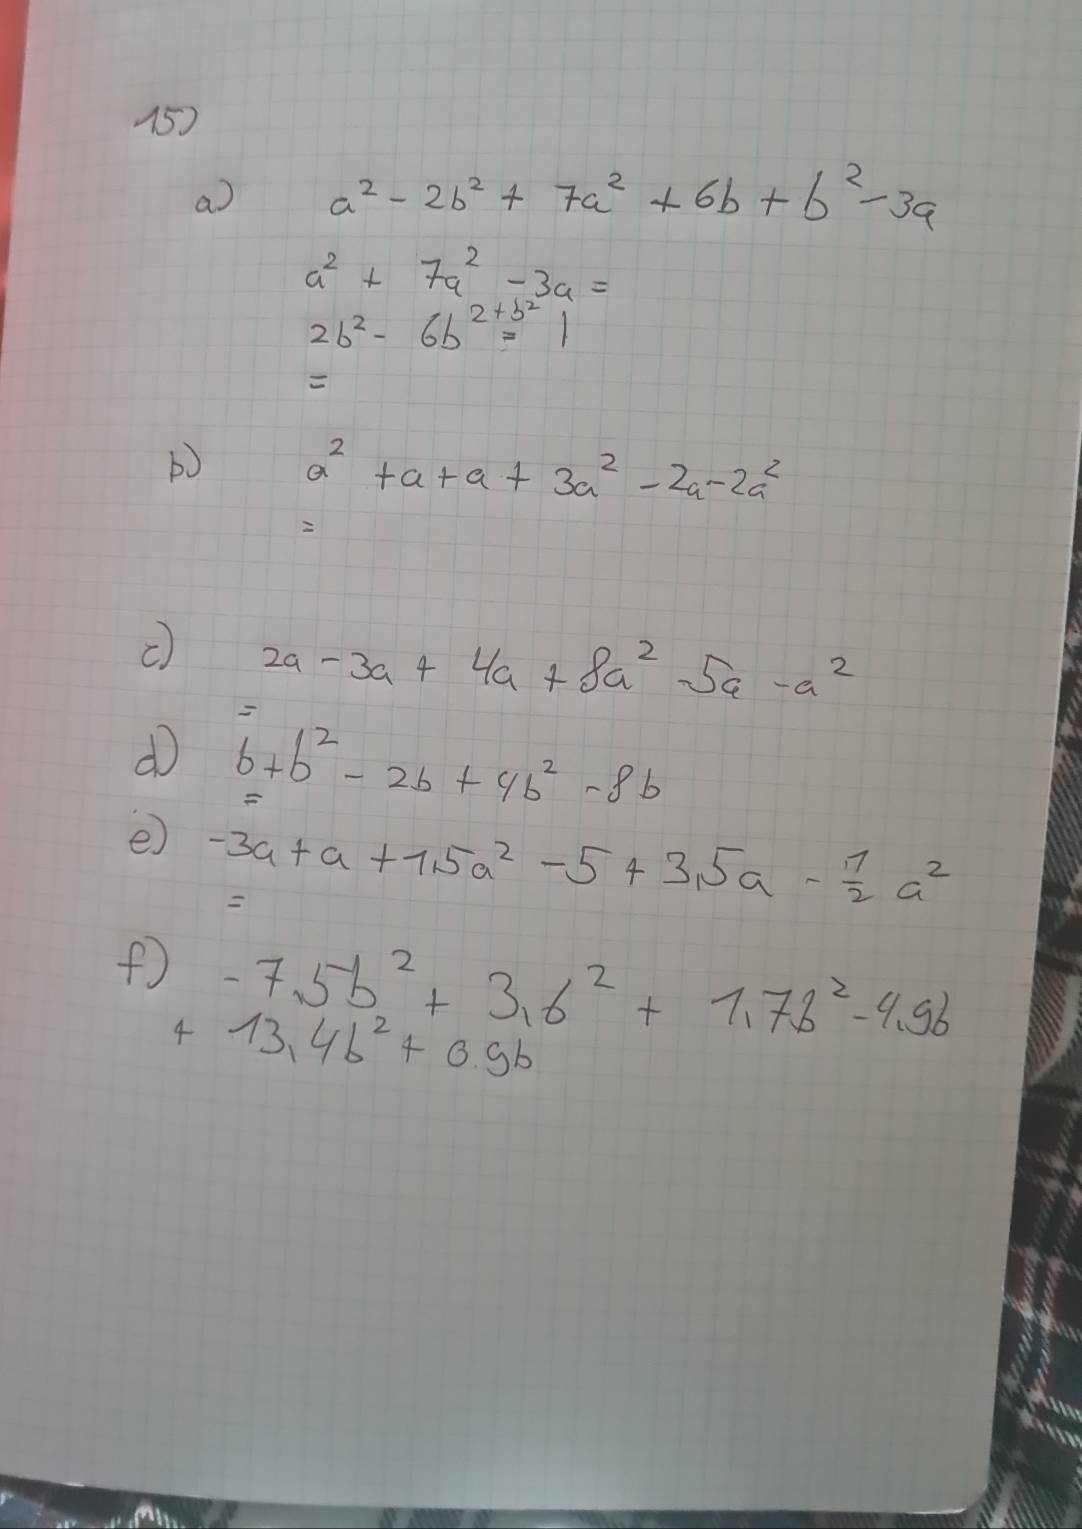 15)
a) a² - 2b² + 7a² + 6b + b² - 3a
a² + 7a² - 3a =
2b² - 6b²⁺ᵇ² = 1
=
b) a² + a + a + 3a² - 2a - 2a²
=
c) 2a - 3a + 4a + 8a² - 5a - a²
=
d) b + b² - 2b + 4b² - 8b
=
e) -3a + a + 1,5a² - 5 + 3,5a - 1/2 a²
=
f) -7,5b² + 3,6² + 1,7b² - 4,9b
+ 13,4b² + 0.9b